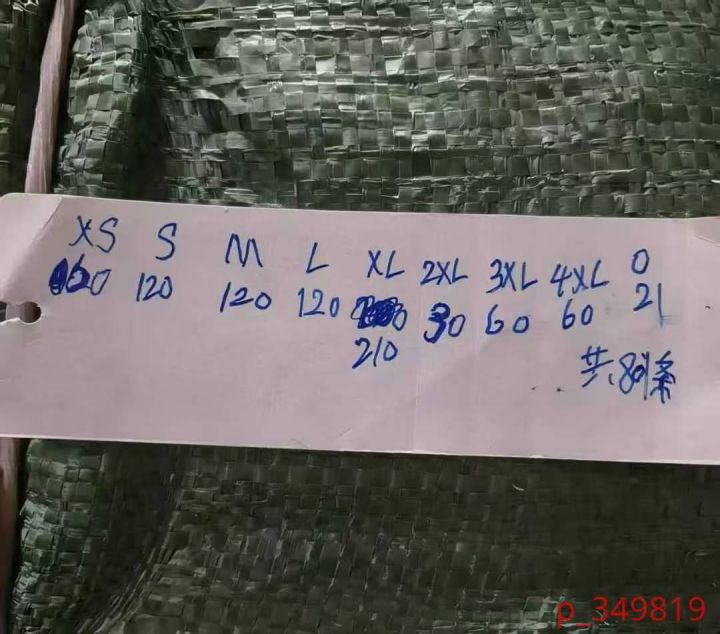 XS S M L XL 2XL 3XL 4XL 0
60 120 120 120 30 60 60 21
210
共801条
p_349819